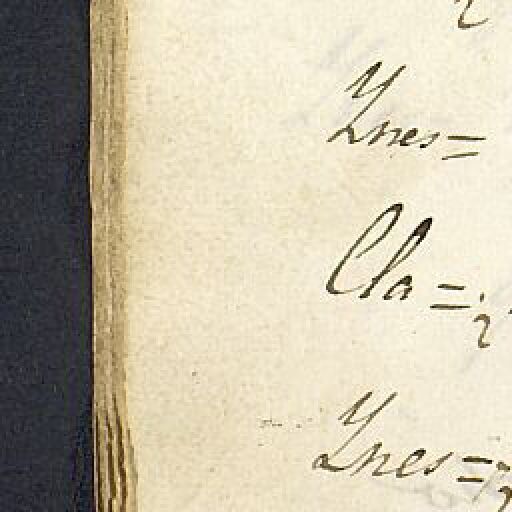 Ynes=
Cla=
Ynes=